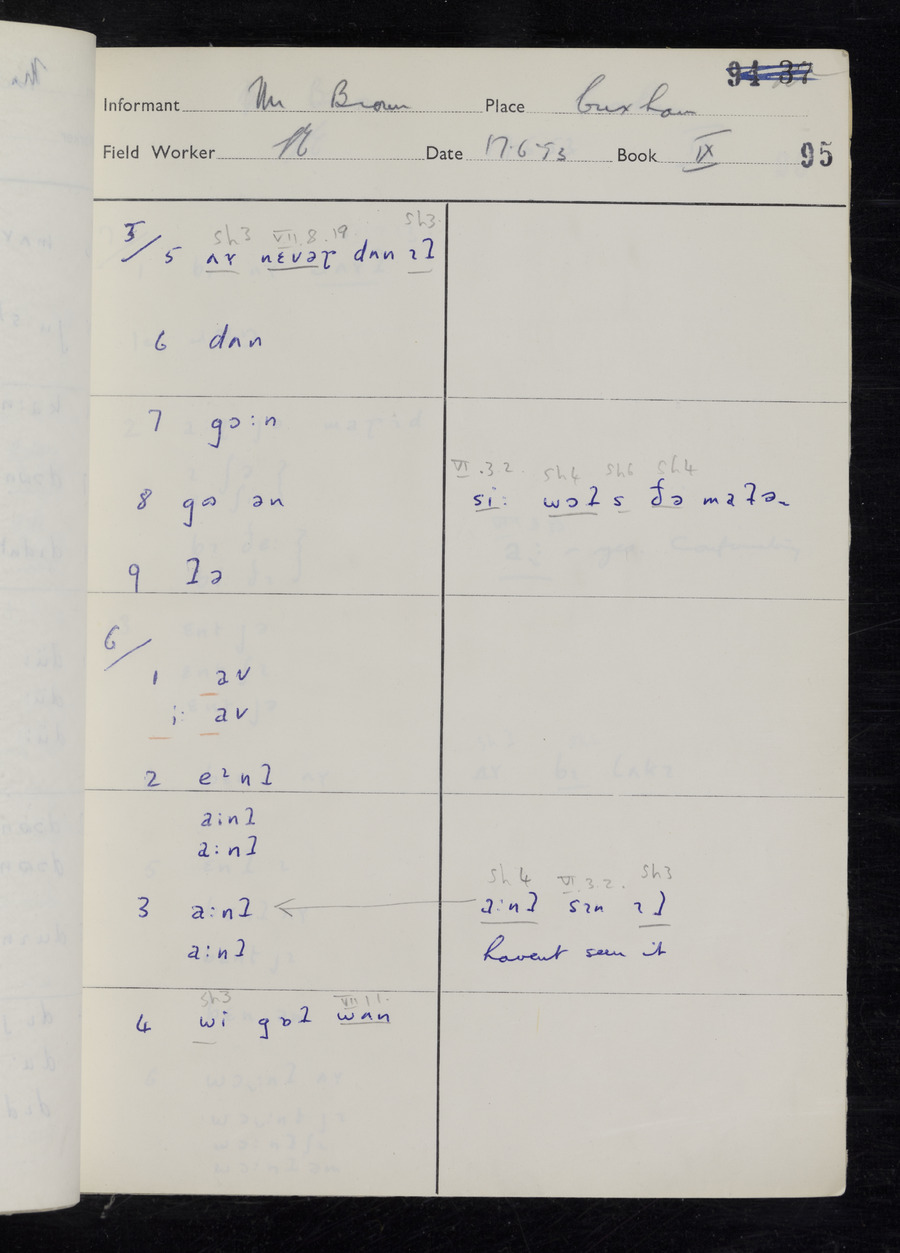 94 37
Informant Mr Brown Place Cuxham
Field Worker Date 17·6·53 Book IX 95
sh3 VII.8.19 sh3.
5/ 5 ʌɤ nɛvəɽ dʌn ɪʔ
6 dʌn
7 gɔːn
VI.3.2. sh4 sh6 sh4
8 gɒ ən siː wɔʔ s ðə maʔə
9 ʔə
6/
1 av
iː av
2 eɪnʔ
ainʔ
aːnʔ
sh4 VI.3.2. sh3
3 aːnʔ aːnʔ sɪn ɪʔ
aːnʔ havent seen it
sh3 VII.1.1.
4 wi gɒʔ wʌn